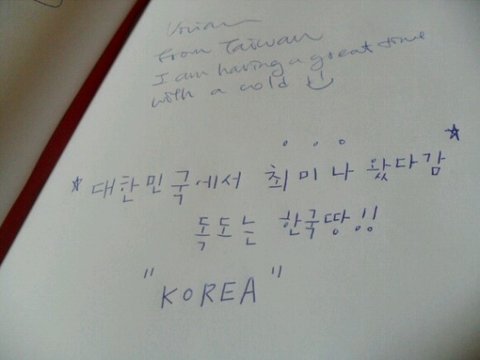 Vivian
from Taiwan
I am having a great time
with a cold
☆대한민국에서 최미나 왔다감☆
독도는 한국땅!!
"KOREA"